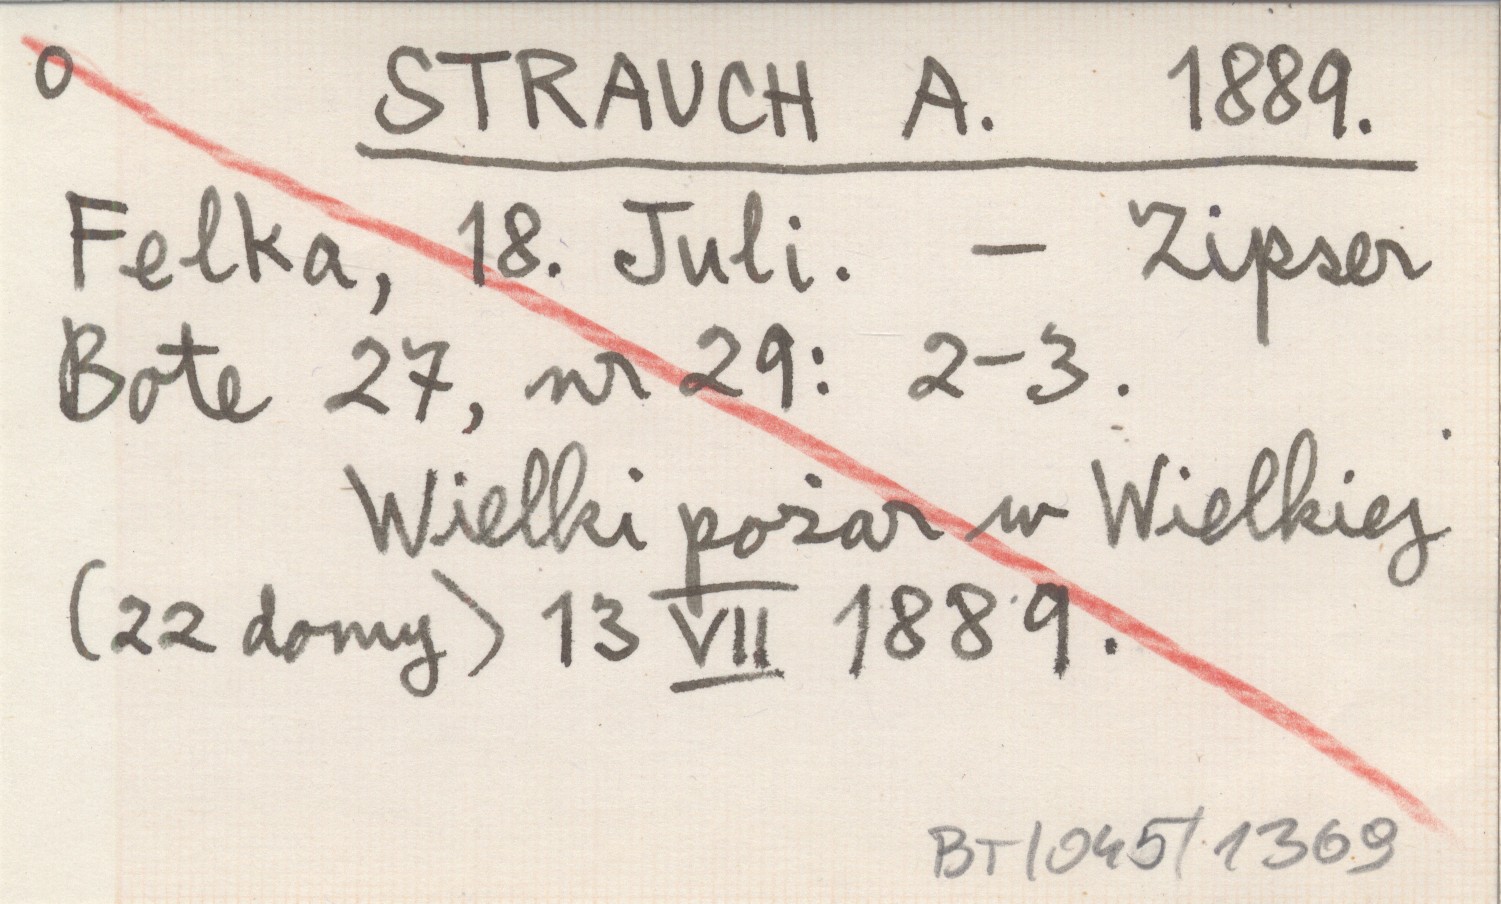 o STRAUCH A. 1889.
Felka, 18. Juli. – Zipser
Bote 27, nr 29: 2-3.
Wielki pożar w Wielkiej
(22 domy) 13 VII 1889.
BT/045/1369